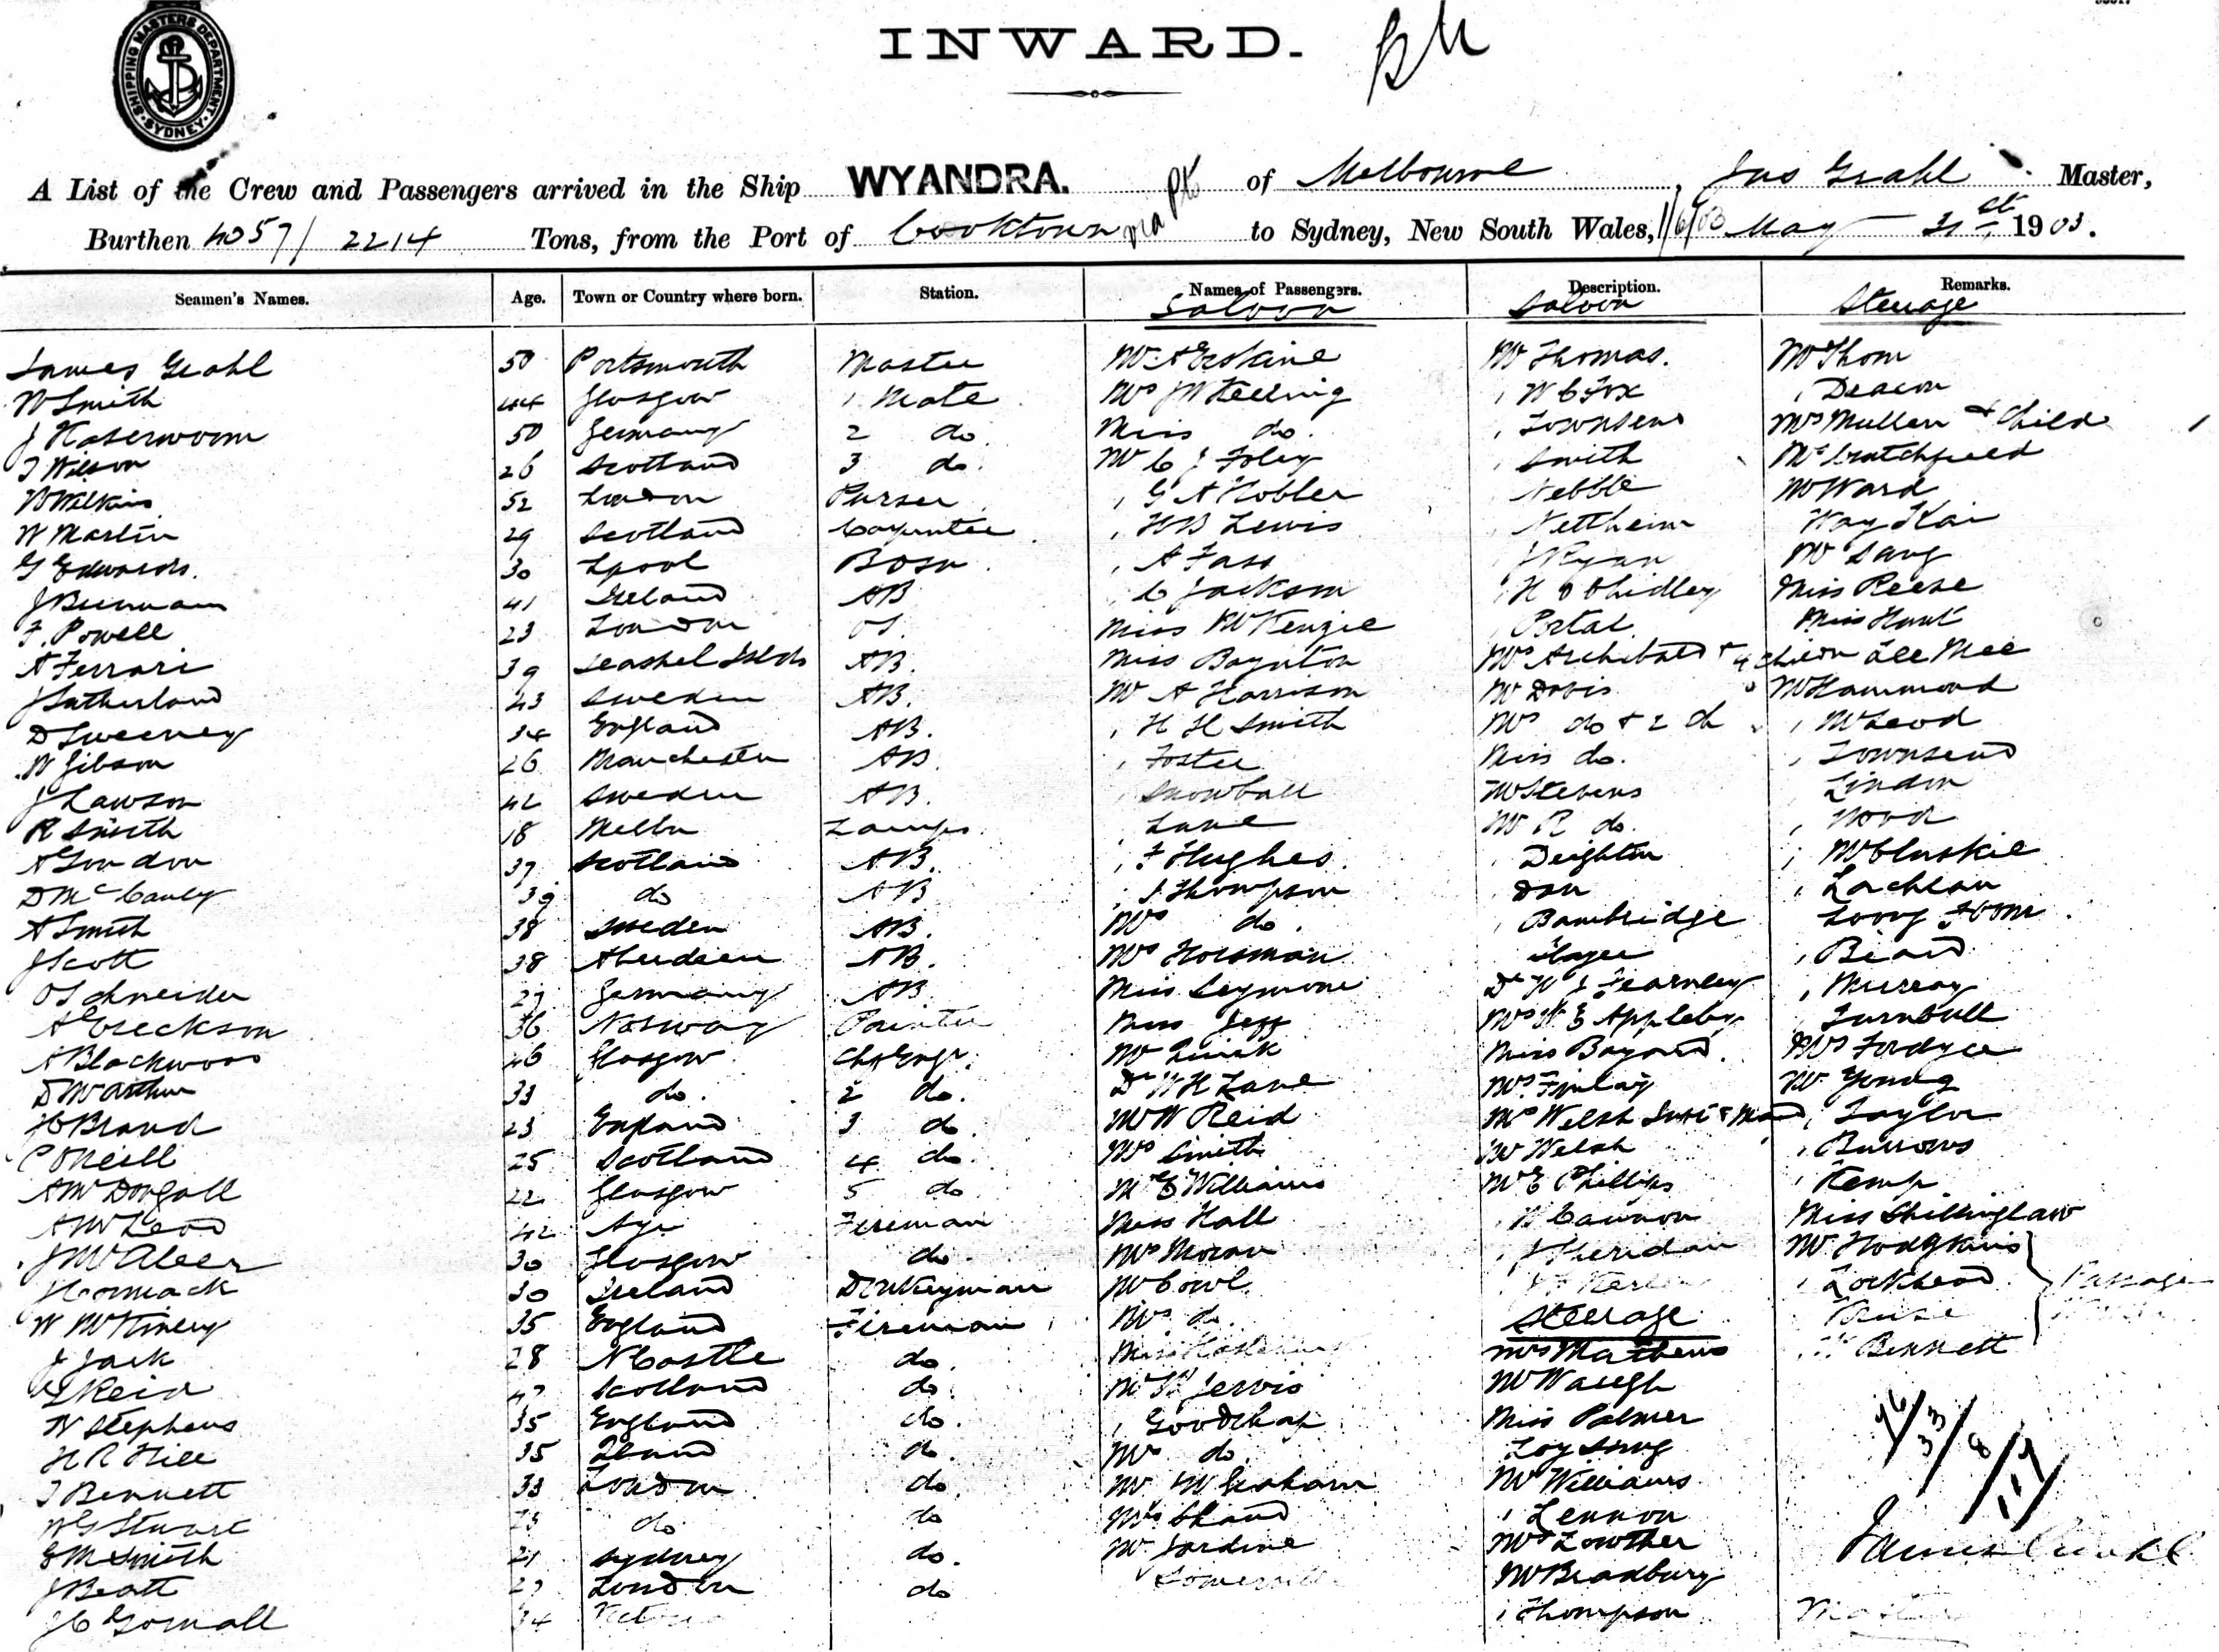 SHIPPING MASTERS DEPARTMENT
SYDNEY
INWARD.
A List of the Crew and Passengers arrived in the Ship WYANDRA. of Melbourne, Jas Grahl Master,
Burthen 4057/2214 Tons, from the Port of Cooktown to Sydney, New South Wales, 1/6/03 May 31st 1903.
Seamen's Names. Age. Town or Country where born. Station. Names of Passengers. Description. Remarks.
Saloon Saloon Steerage
James Grahl 50 Portsmouth Master Mr A Erskine Mr Thomas. Mr Thom
W Smith 44 Glasgow 1 Mate Mrs Keeling , W C Fox , Deacon
50 Germany 2 do. Miss do. , Townsend Mrs Mullen & Child
J Wilson 26 Scotland 3 do. Mr C J Foley , Smith
W Wilkins 52 London Purser , G A Kobler Nebble Mr Ward
W Martin 29 Scotland Carpenter , H B Lewis , Nettheim Way Kai
G Edwards. 30 Lpool Bosn. , A Fass , J Ryan Mr Lang
41 Ireland AB , C Jackson , H Chidley Miss Reese
F. Powell 23 London OS. Miss McKenzie , Portal Miss Hunt
A Ferrari 39 AB. Miss Boynton Mrs Archibald & 4 children
J Sutherland 43 Sweden AB. Mr A Harrison Mr Davis Mr Hammond
D Sweeney 34 England AB. , H H Smith Mrs do & 2 ch , McLeod
W Gibson 26 Manchester AB. , Foster Miss do. , Townsend
J Lawson 42 Sweden AB. , Snowball Mr Stevens , Lindon
R Smith 18 Melbn Lamps. , Lane Mr R do. , Wood
A Gordon 37 Scotland AB. , F Hughes. , Deighton , McCluskie
D McCauley 39 do AB , J. Thompson , Dan , Lachlan
A Smith 38 Sweden AB. Mrs do. , Bambridge
J Scott 38 Aberdeen AB. Mrs Horsman , Beard
O Schneider 27 Germany AB. Miss Seymour Dr W J Fearnley , Murray
A Ereckson 36 Norway Painter Miss Jeff Mrs W E Appleby , Turnbull
A Blackwood 46 Glasgow. Chf Engr. Mr Quick Miss Bayard. Mrs Fordyce
D McArthur 33 do. 2 do. Dr W H Lane Mrs Finlay Mr Young
H Brand 23 England 3 do. Mr W Reid Mrs Welsh & Maid , Taylor
C ONeill 25 Scotland 4 do. Mrs Smith Mr Welsh , Burrows
A McDougall 22 Glasgow 5 do Mr E Williams Mr E Phillips , Kemp
A McLeod 42 Ayr Fireman Miss Hall , W Cannon Miss Shillinglaw
J McAleer 30 Glasgow do. Mrs Moran , J Sheridan Mr Hodgkins
J Cormack 30 Ireland Dnkeyman Mr Cowl , Lockhead Passage
W McKinery 35 England Fireman Mrs do. Steerage
J Jack 28 NCastle do. Miss Mrs Mathews , Bennett
Reid 47 Scotland do. Mr Jervis Mr Waugh
W Stephens 35 England do. , Goodchap Miss Palmer
H R Hill 35 do. Mrs do.
J Bennett 33 London do. Mr Graham Mr Williams
W G Stuart do do Mrs Shand , Lennon
E M Smith 21 Sydney do. Mr Jardine Mrs Lowther
J Beatt 27 London do , Somerville Mr Bradbury
J C Gornall 34 , Thompson
James Grahl
Master